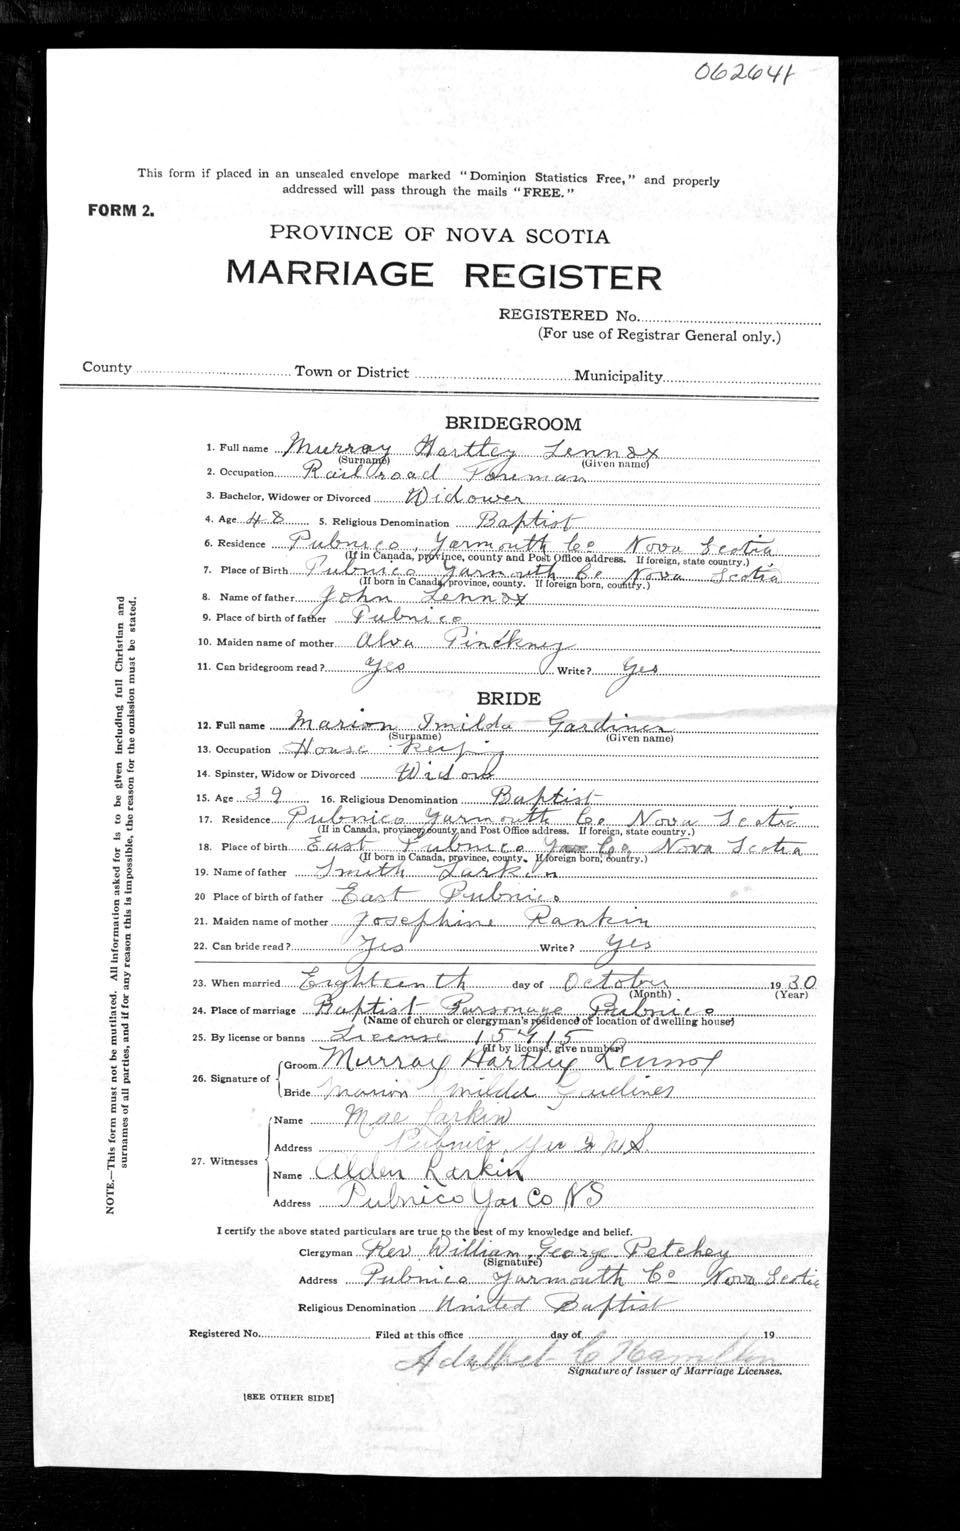 062641
This form if placed in an unsealed envelope marked "Dominion Statistics Free," and properly
addressed will pass through the mails "FREE."
FORM 2.
PROVINCE OF NOVA SCOTIA
MARRIAGE REGISTER
REGISTERED No.
(For use of Registrar General only.)
County Town or District Municipality
BRIDEGROOM
1. Full name Murray Hartley Lennox
(Surname) (Given name)
2. Occupation Railroad Foreman
3. Bachelor, Widower or Divorced Widower
4. Age 48 5. Religious Denomination Baptist
6. Residence Pubnico, Yarmouth Co Nova Scotia
(If in Canada, province, county and Post Office address. If foreign, state country.)
7. Place of Birth Pubnico Yarmouth Co Nova Scotia
(If born in Canada, province, county. If foreign born, country.)
8. Name of father John Lennox
9. Place of birth of father Pubnico
10. Maiden name of mother Alva Pinckney
11. Can bridegroom read? Yes Write? Yes
BRIDE
12. Full name Marion Imilda Gardiner
(Surname) (Given name)
13. Occupation House Keeping
14. Spinster, Widow or Divorced Widow
15. Age 39 16. Religious Denomination Baptist
17. Residence Pubnico Yarmouth Co Nova Scotia
(If in Canada, province, county and Post Office address. If foreign, state country.)
18. Place of birth East Pubnico Yar Co. Nova Scotia
(If born in Canada, province, county. If foreign born, country.)
19. Name of father Smith Larkin
20 Place of birth of father East Pubnico
21. Maiden name of mother Josephine Rankin
22. Can bride read? Yes Write? Yes
23. When married Eighteenth day of October 1930
(Month) (Year)
24. Place of marriage Baptist Parsonage Pubnico
(Name of church or clergyman's residence of location of dwelling house)
25. By license or banns License 15915
(If by license, give number)
26. Signature of Groom Murray Hartley Lennox
Bride Marion Imilda Gardiner
27. Witnesses Name Mae Larkin
Address Pubnico, Yar Co N.S.
Name Alden Larkin
Address Pubnico Yar Co NS
I certify the above stated particulars are true to the best of my knowledge and belief.
Clergyman Rev. William George Petchey
(Signature)
Address Pubnico Yarmouth Co Nova Scotia
Religious Denomination United Baptist
Registered No. Filed at this office day of 19
C Hamilton
Signature of Issuer of Marriage Licenses.
[SEE OTHER SIDE]
NOTE.—This form must not be mutilated. All information asked for is to be given including full Christian and
surnames of all parties, and if for any reason this is impossible, the reason for the omission must be stated.